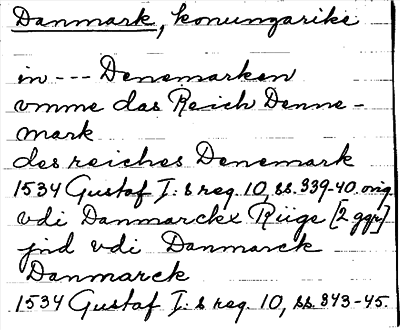 Danmark, konungarike
in --- Denemarken
vmme das Reich Denne-
mark
des reiches Denemark
1534 Gustaf I:s reg. 10, ss. 339-40. orig
vdi Danmarckx Rüge [2 ggr]
jnd vdi Danmarck
Danmarck
1534 Gustaf I:s reg. 10, ss. 343-45.